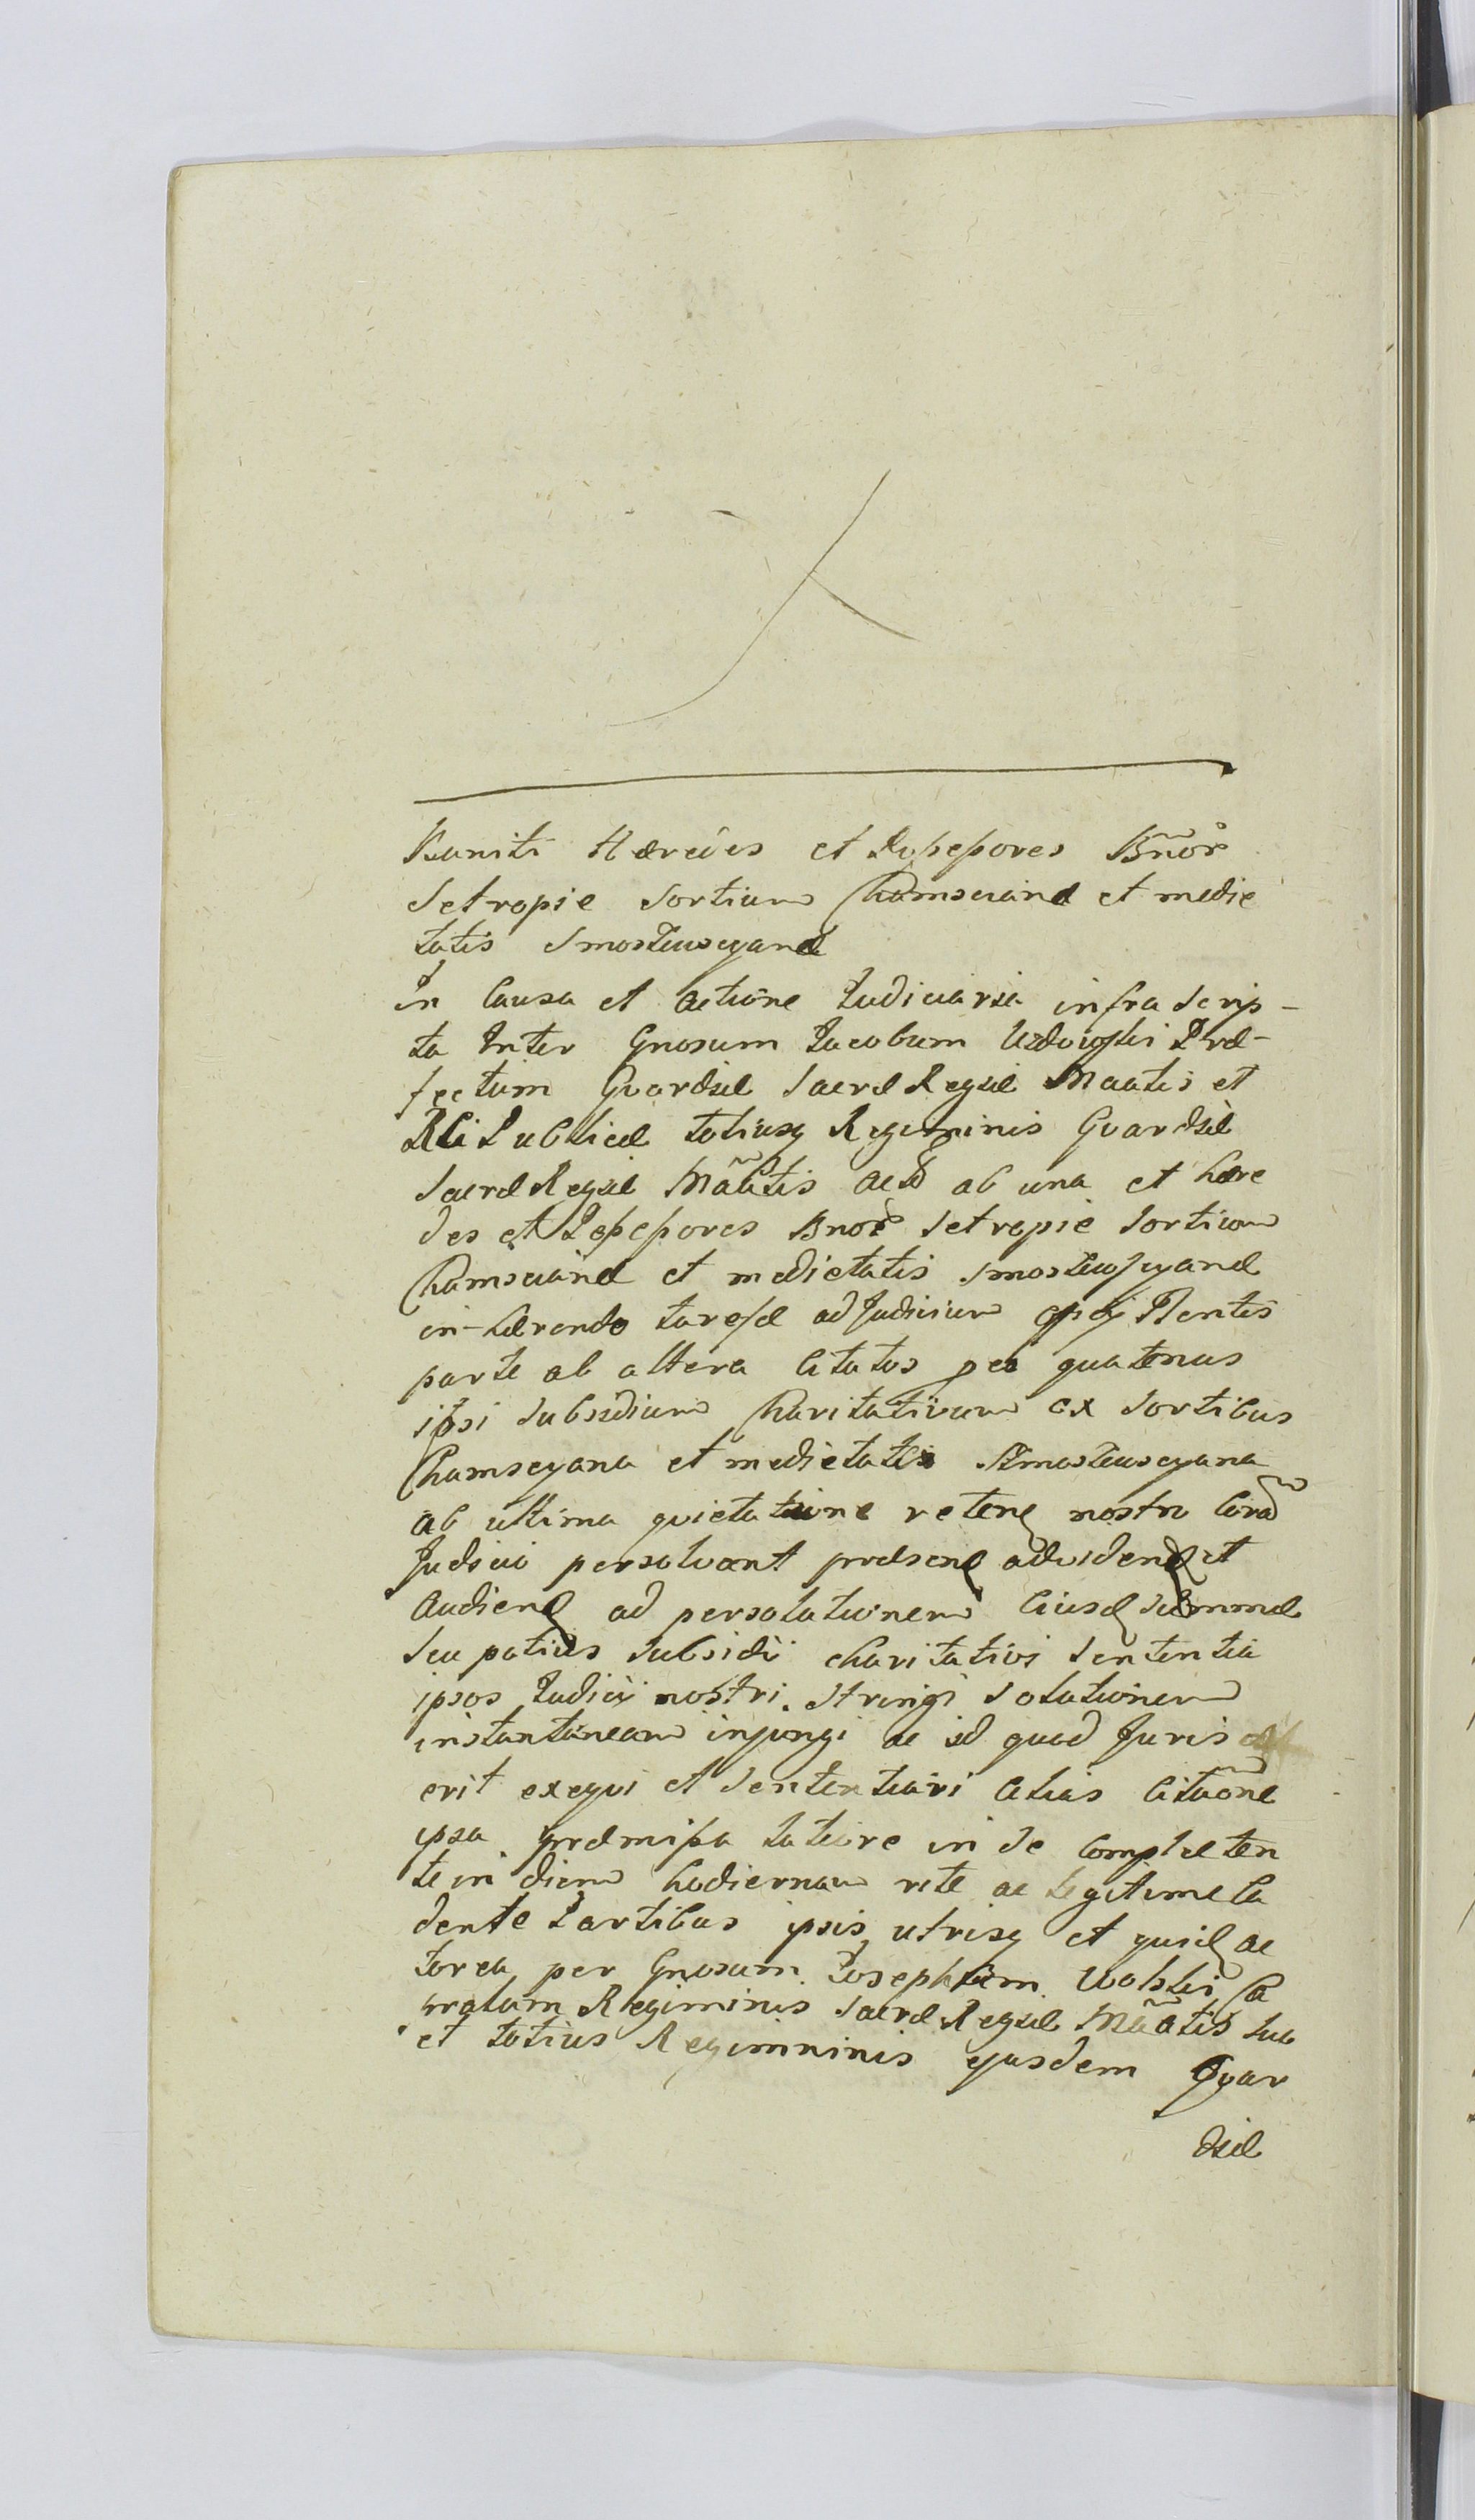 Puniti Hæredes et Possessores Bñor
Setropie Sortium Chamsciana et medie
tatis Smosteusgyanæ
in Causa et actione Judiciaria infra scrip-
ta Inter Gnosum Jacobum Uzdowski Præ-
fectum Gvardiæ Sacræ Regiæ Maatis et
RLi Publicæ totiusq Regiminis Gvardiæ
Sacræ Regiæ Mãatis ab una et hære
des et Possessores Bnor Setropie Sortium
Chamscianæ et medietatis Smosteusgyanæ
in-hærendo ad Judicium
parte ab altera Citatos quatenus
ipsi Subsidium Charitativum ex Sortibus
Chamsegana et medietatis Smosteusegana
ab ultima quietatione nostro
Judicio persolvant præsen ad viden et
Audien ad persolutionem Cius Summæ
Seu potius Subsidii Charitativi Sententia
ipsos Judicii nostri. Stringi Solutionem
instantaneam injungi ac id quod Juris
erit exequi et Sententiari Alias Citaõne
ipsa præmissa latiore in Se Complecten
te in diem hodiernam rite ac legitime Ca
dente Partibus ipsis utrisq et quid ac
torea per Gnosum Josephum Wolski
Regiminis Sacræ Regiæ Mãatis
et totius Regimninis ejusdem Gvar
diæ